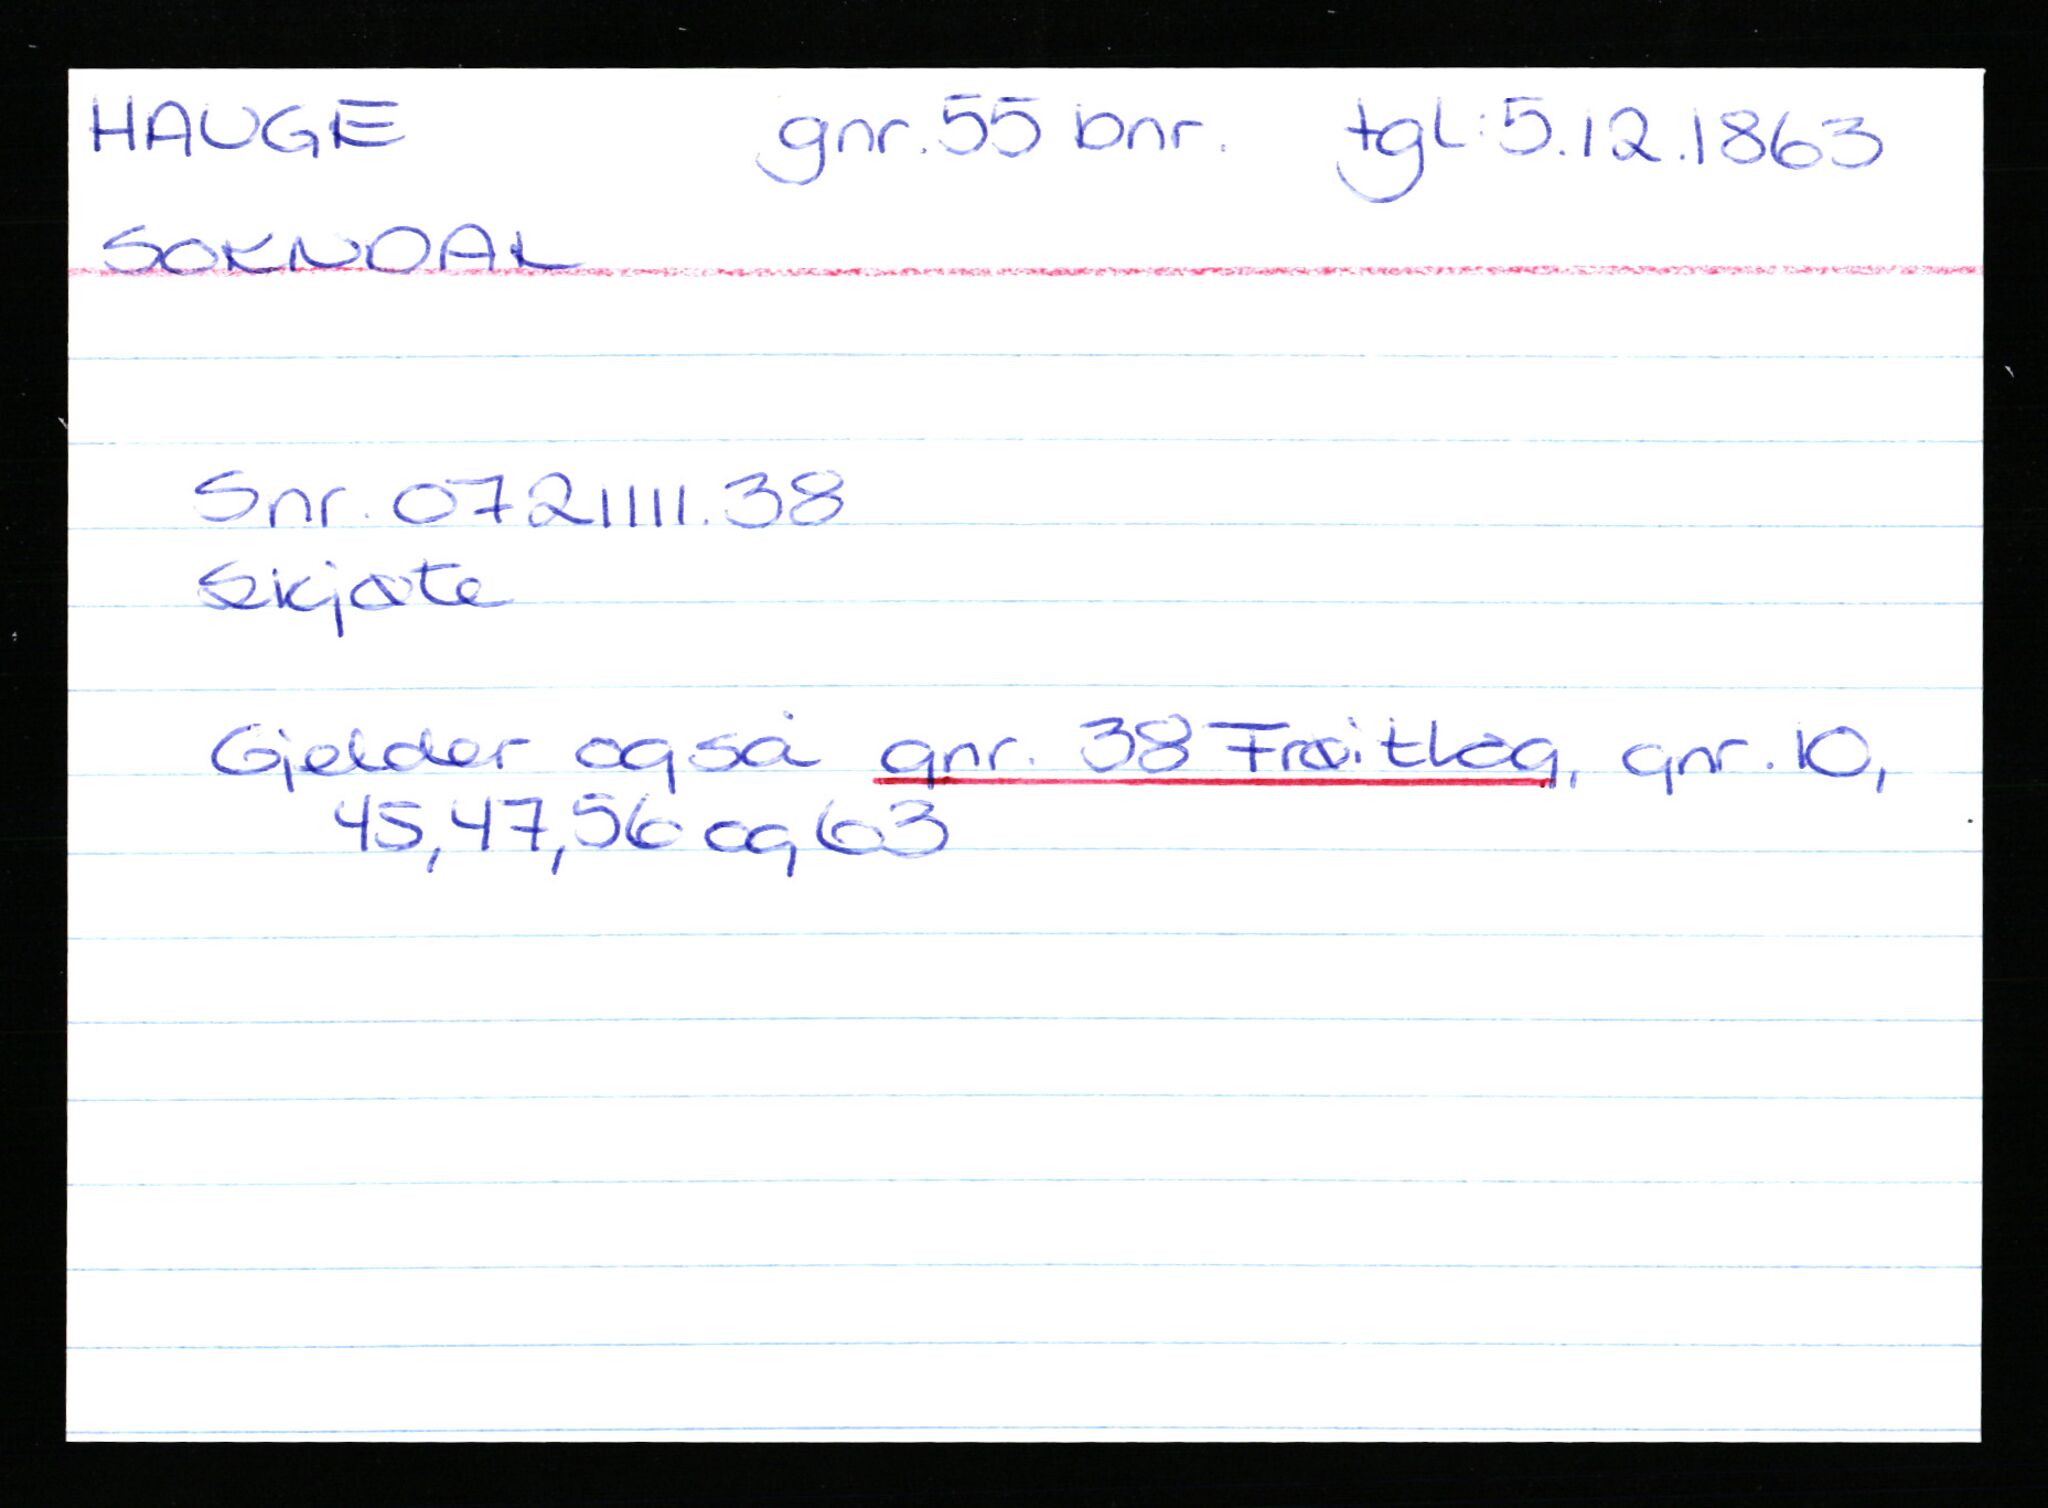 HAUGE gnr. 55 bnr. tgl: 5.12.1863
SOKNDAL
Snr. 0721111.38
Skjøte
Gjelder også gnr. 38 Frøitlog, gnr. 10,
45, 47, 56 og 63